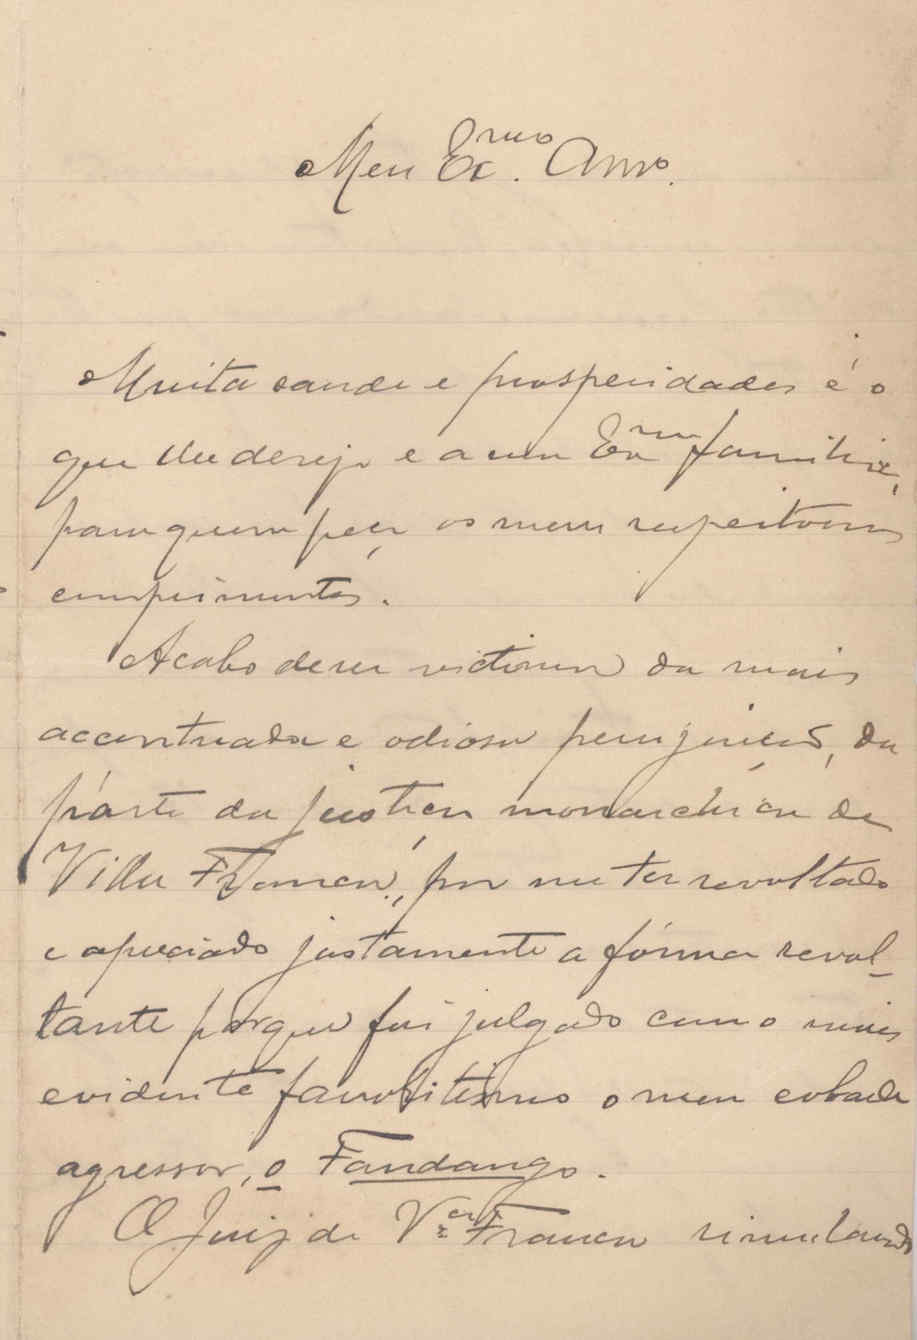 Meu Exmo. Amo.
Muita saude e prosperidades é o
que lhe desejo e a sua Exma familia,
para quem peço os meus respeitosos
cumprimentos.
Acabo de ser victima da mais
accentuada e odiosa perseguição, da
parte da justiça monarchica de
Villa Franca, por me ter revoltado
e apreciado justamente a fórma revol-
tante porque foi julgado com o mais
evidente favoritismo o meu cobarde
agressor, o Fandango.
O Juiz de Va Franca simulando